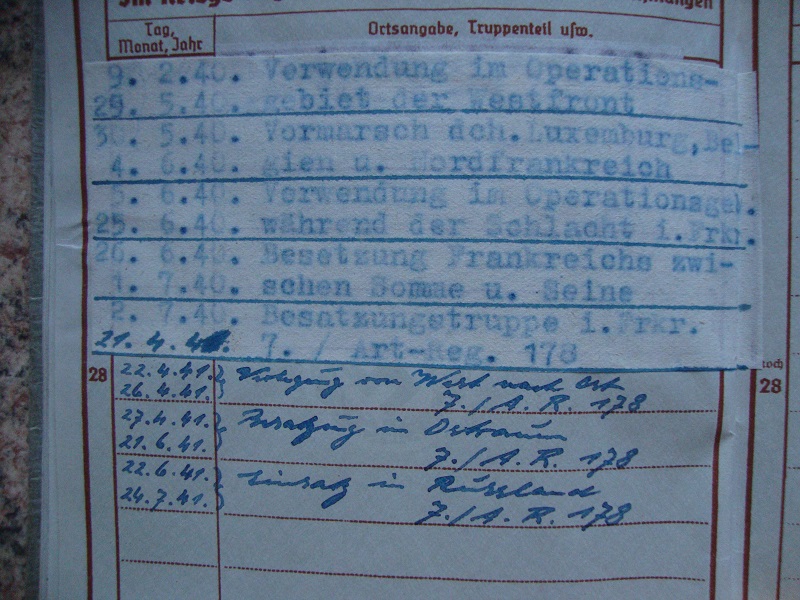 Im Kriege
Tag, Ortsangabe, Truppenteil usw.
Monat, Jahr
9. 2.40. Verwendung im Operations-
29. 5.40. gebiet der Westfront
30. 5.40. Vormarsch dch.Luxemburg,Bel-
4. 6.40. gien u. Nordfrankreich
5. 6.40. Verwendung im Operationsgeb.
25. 6.40. während der Schlacht i.Frkr.
26. 6.40. Besetzung Frankreichs zwi-
1. 7.40. schen Somme u. Seine
2. 7.40. Besatzungstruppe i.Frkr.
21. 4. 41. 7. / Art-Reg. 178
28 22.4.41. Verlegung von West nach Ost
26.4.41. 7./A.R. 178
27.4.41. Besatzung im Ostraum
21.6.41. 7./A.R. 178
22.6.41. Einsatz in Russland
24.7.41. 7./A.R. 178
28